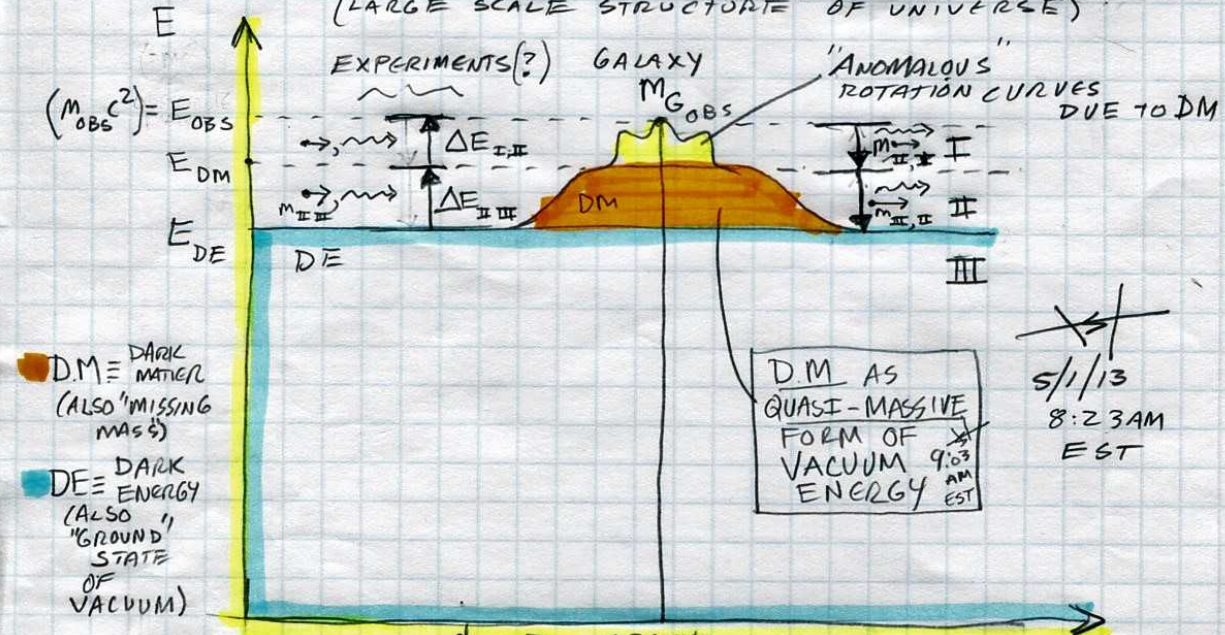 (LARGE SCALE STRUCTURE OF UNIVERSE)
E
EXPERIMENTS(?)
GALAXY
M G OBS
"ANOMALOUS"
ROTATION CURVES
DUE TO DM
(M OBS C²) = E OBS
E DM
E DE
ΔE I,II
ΔE II III
m II III
DM
DE
m II,I
I
m III,II
II
III
D.M ≡ DARK
MATTER
(ALSO "MISSING
MASS")
DE ≡ DARK
ENERGY
(ALSO
"GROUND"
STATE
OF
VACUUM)
D.M AS
QUASI-MASSIVE
FORM OF
VACUUM
ENERGY
9:03
AM
EST
5/1/13
8:23AM
EST